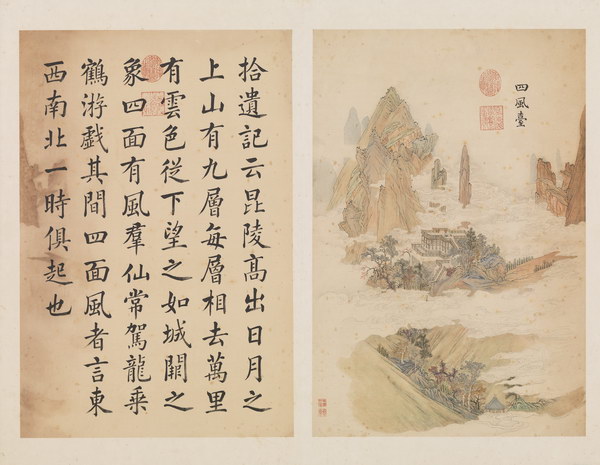 拾遺記云昆陵髙出日月之
上山有九層每層相去萬里
有雲色從下望之如城闕之
象四面有風羣仙常駕龍乗
鶴游戲其間四面風者言東
西南北一時俱起也
四風臺